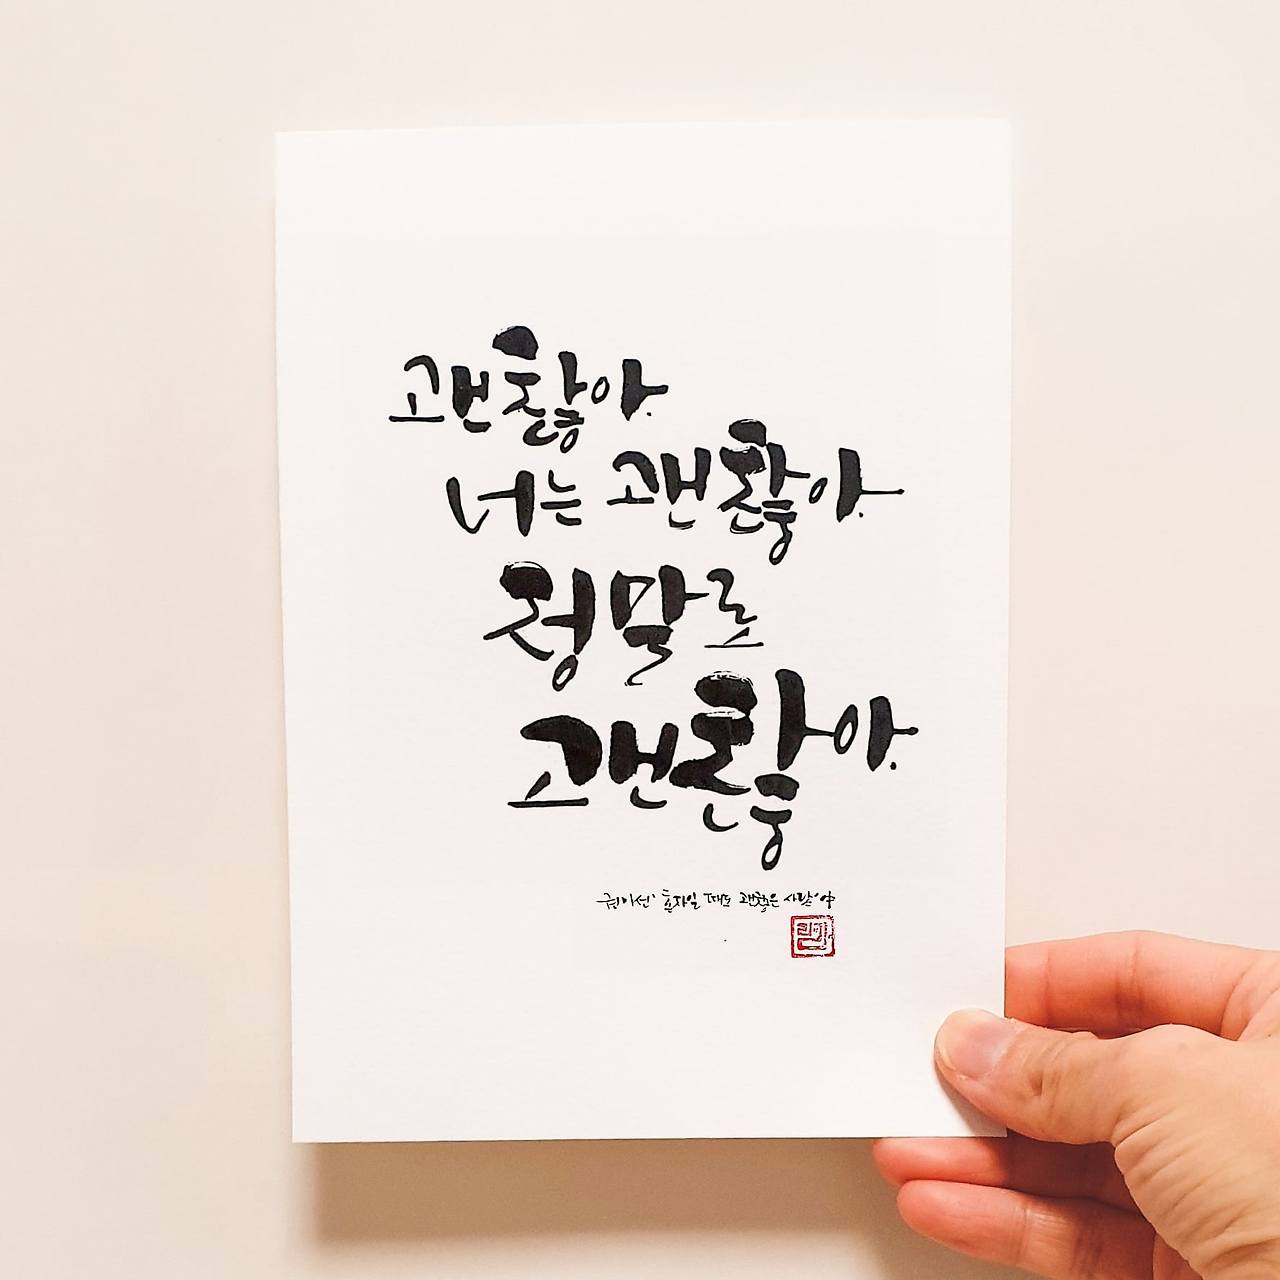 괜찮아.
너는 괜찮아.
정말로
괜찮아.
권미선' 혼자일 때도 괜찮은 사람'中